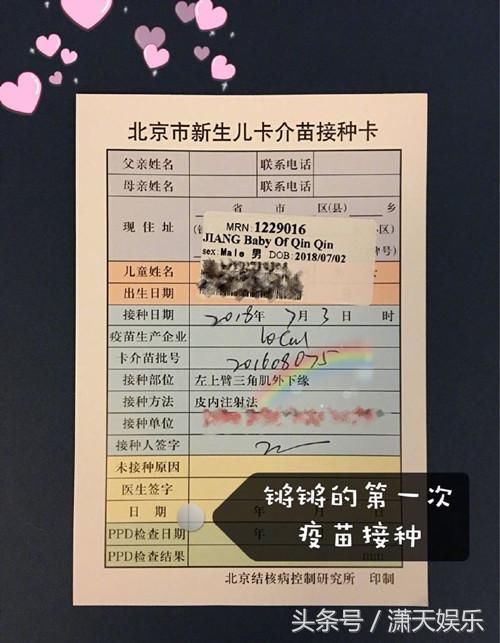 北京市新生儿卡介苗接种卡
父亲姓名 联系电话
母亲姓名 联系电话
省 市 区(县) 乡
现住址
MRN: 1229016
JIANG Baby Of Qin Qin
sex: Male 男 DOB: 2018/07/02
儿童姓名
出生日期
接种日期 2018年 7月 3日 时
疫苗生产企业 local
卡介苗批号 201608075
接种部位 左上臂三角肌外下缘
接种方法 皮内注射法
接种单位
接种人签字
未接种原因
医生签字
日期 年
PPD检查日期 年
PPD检查结果 mm
锵锵的第一次
疫苗接种
北京结核病控制研究所 印制
头条号／潇天娱乐